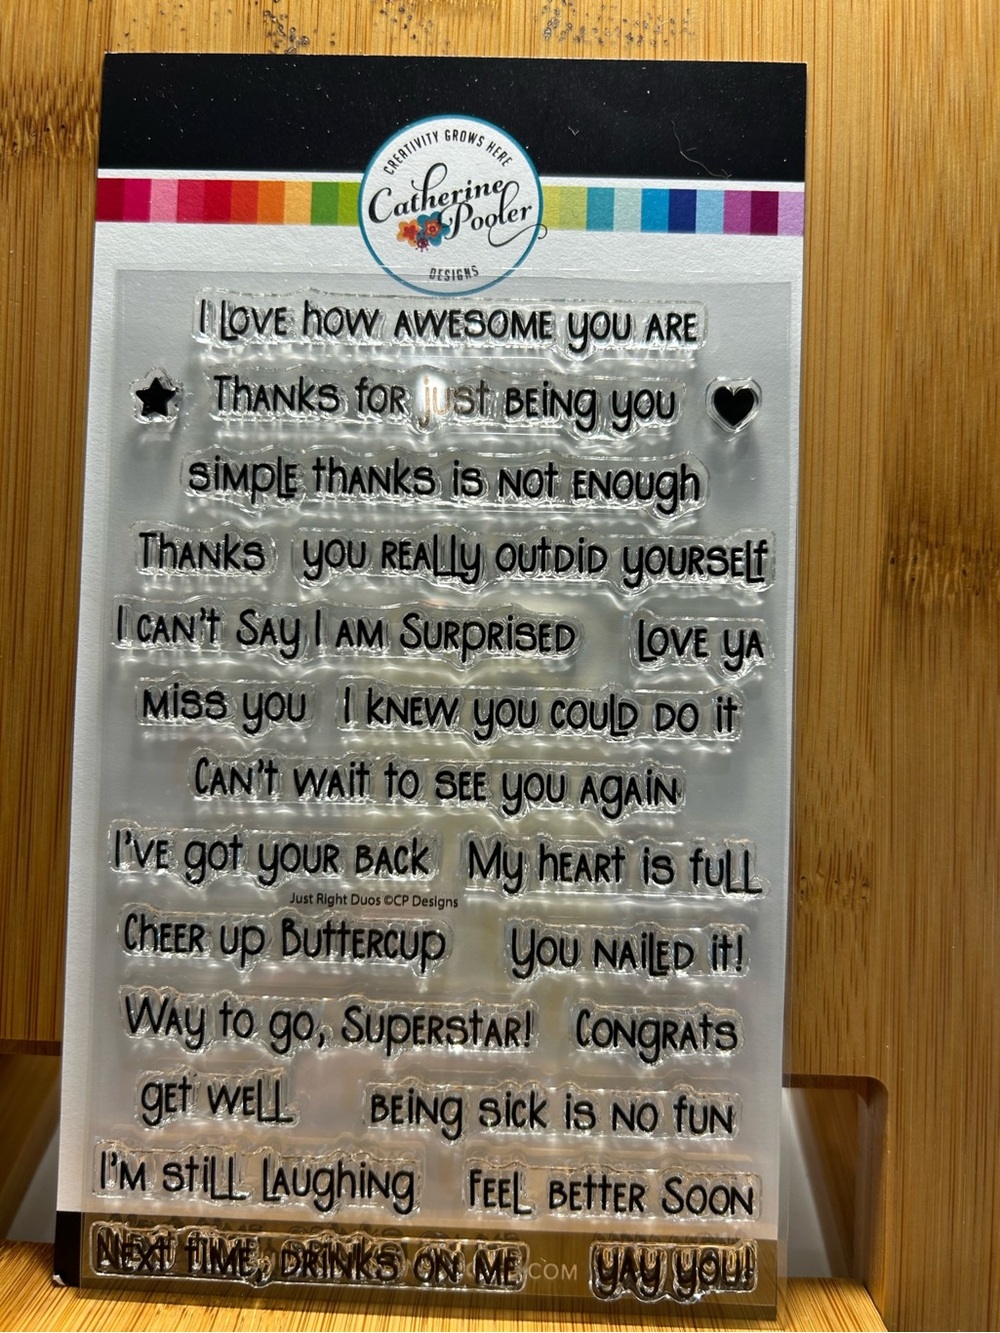 CREATIVITY GROWS HERE
Catherine
Pooler
DESIGNS
I LOVE how AWESOME you ARE
Thanks for just being you
simple thanks is not enough
Thanks you really outdid yourself
I can't Say I am Surprised Love ya
miss you I knew you could do it
Can't wait to see you again
I've got your back My heart is full
Just Right Duos ©CP Designs
Cheer up Buttercup You nailed it!
Way to go, Superstar! Congrats
get well Being sick is no fun
I'm still Laughing Feel better Soon
Next time, drinks on me yay you!
.COM